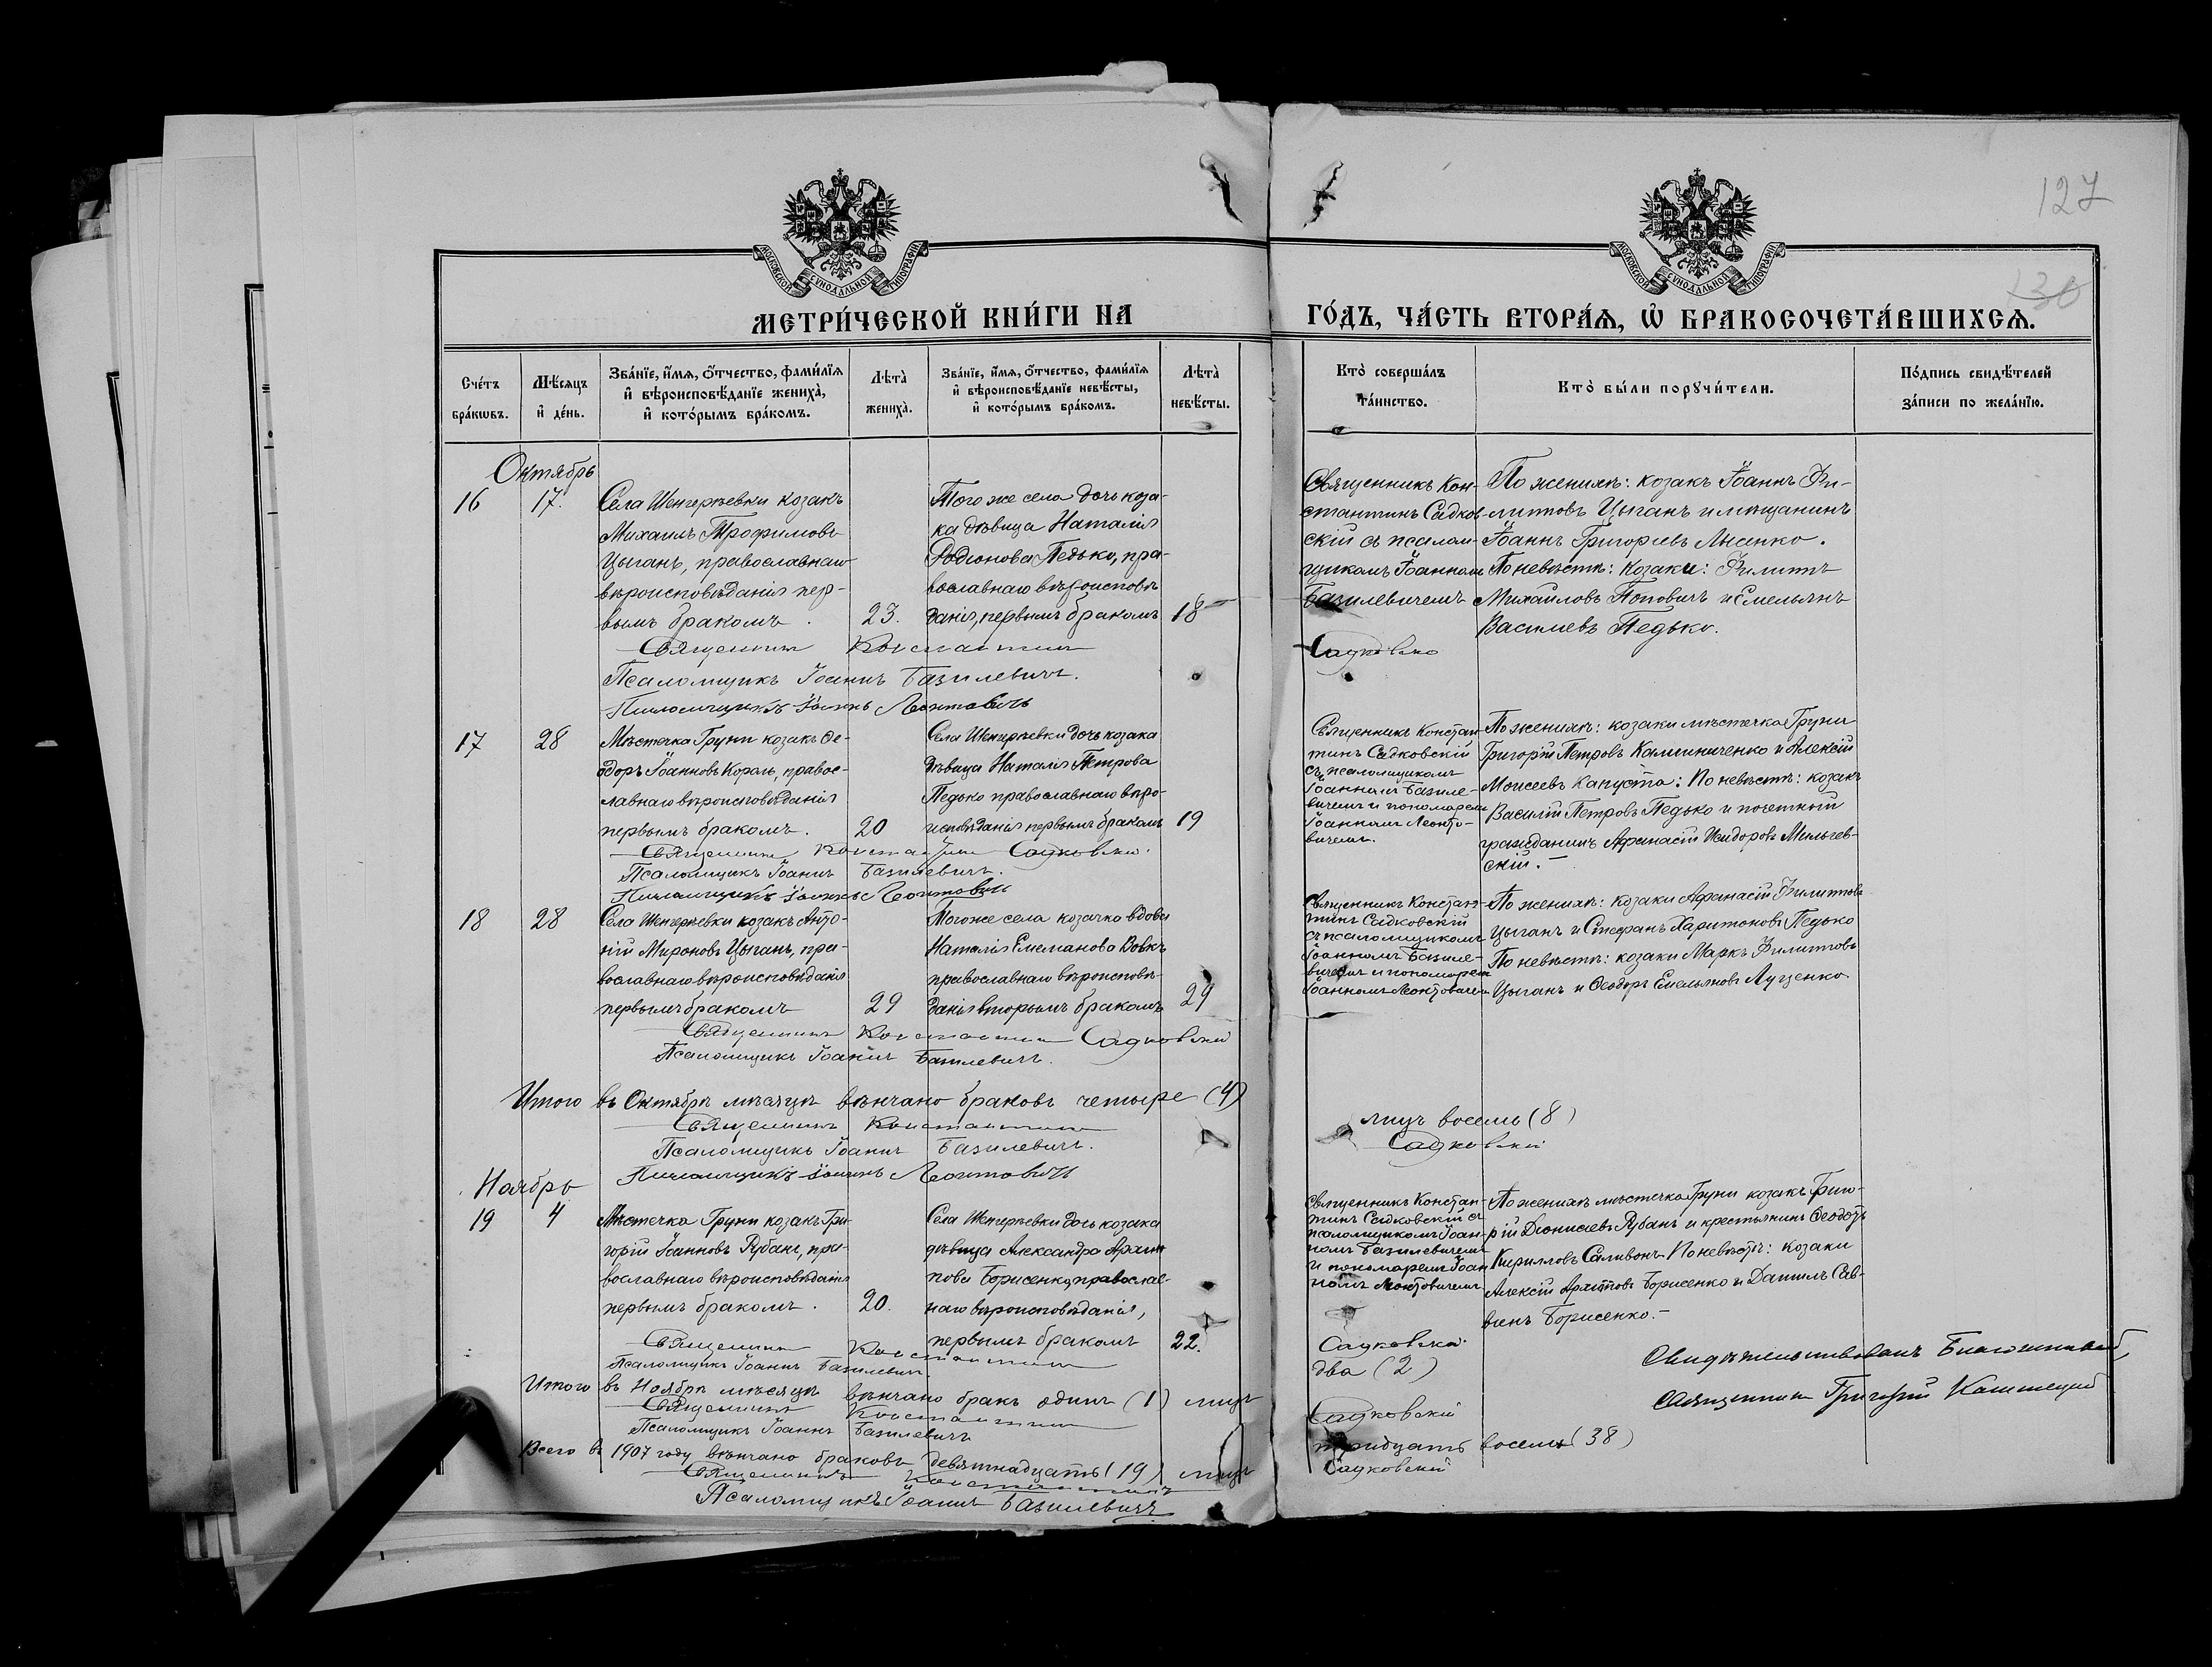 127
130
МОСКОВСКОЙ СѴНОДАЛЬНОЙ ТИПОГРАФІИ
МОСКОВСКОЙ СѴНОДАЛЬНОЙ ТИПОГРАФІИ
МЕТРИ́ЧЕСКОЙ КНИ́ГИ НА
ГО́ДЪ, ЧА́СТЬ ВТОРА́Я, Ѽ БРАКОСОЧЕТА́ВШИХСЯ.
Сче́тъ бра́кωвъ.
Мѣ́сяцъ и҆ де́нь.
Зва́нїе, и҆́мя, ѻ҆́тчество, фами́лїя
и҆ вѣроисповѣ́данїе жениха̀,
и҆ кото́рымъ бра́комъ.
Лѣта̀ жениха̀.
Зва́нїе, и҆́мя, ѻ҆́тчество, фами́лїя
и҆ вѣроисповѣ́данїе невѣ́сты,
и҆ кото́рымъ бра́комъ.
Лѣта̀ невѣ́сты.
Кто̀ соверша́лъ та́инство.
Кто̀ бы́ли порꙋчи́тели.
По́дпись свидѣ́телей
за́писи по жела́нїю.
Октябрь
16
17.
Села Шенгерѣевки козакъ
Михаилъ Трофимовъ
Цыганъ, православнаго
вѣроисповѣданія пер-
вымъ бракомъ.
23.
Того же села дочь коза-
ка дѣвица Наталія
Родіонова Педько, пра-
вославнаго вѣроисповѣ
данія, первымъ бракомъ
18
Священникъ Кон-
стантинъ Садков-
скій съ псалом-
щикомъ Іоанномъ
Базилевичемъ
По женихѣ: козакъ Іоаннъ Фи-
липповъ Цыганъ и мѣщанинъ
Іоаннъ Григорьевъ Лысенко.
По невѣстѣ: козаки: Филиппъ
Михайловъ Поповичъ и Емельянъ
Василіевъ Педько.
Священникъ Константинъ Садковскій
Псаломщикъ Іоаннъ Базилевичъ.
Псаломщикъ Іоаннъ Леонтовичъ
17
28
Мѣстечка Груни козакъ Ѳе-
одоръ Іоанновъ Король, правос-
лавнаго вѣроисповѣданія
первымъ бракомъ.
20
Села Шенгерѣевки дочь козака
дѣвица Наталія Петрова
Педько православнаго вѣро-
исповѣданія первымъ бракомъ
19
Священникъ Констан-
тинъ Садковскій
съ псаломщикомъ
Іоанномъ Базиле-
вичемъ и пономаремъ
Іоанномъ Леонто-
вичемъ.
По женихѣ: козаки мѣстечка Груни
Григорій Петровъ Калиниченко и Алексій
Моисеевъ Капуста: По невѣстѣ: козакъ
Василій Петровъ Педько и почетный
гражданинъ Афанасій Исидоровъ
скій.
Священникъ Константинъ Садковскій
Псаломщикъ Іоаннъ Базилевичъ.
Псаломщикъ Іоаннъ Леонтовичъ
18
28
Села Шенгерѣевки козакъ Анто-
ній Мироновъ Цыганъ, пра-
вославнаго вѣроисповѣданія
первымъ бракомъ
29
Того же села козачка вдова
Наталія Емельянова Вовкъ
православнаго вѣроисповѣ-
данія вторымъ бракомъ
29
Священникъ Констан-
тинъ Садковскій
съ псаломщикомъ
Іоанномъ Базиле-
вичемъ и пономаремъ
Іоанномъ Леонтовичемъ
По женихѣ: козаки Афанасій Филипповъ
Цыганъ и Стефанъ Харитоновъ Педько
По невѣстѣ: козаки Маркъ Филипповъ
Цыганъ и Ѳеодоръ Емельяновъ Луценко
Священникъ Константинъ Садковскій
Псаломщикъ Іоаннъ Базилевичъ.
Итого въ Октябрѣ мѣсяцѣ вѣнчано браковъ четыре (4)
лицъ восемь (8)
Священникъ Константинъ Садковскій
Псаломщикъ Іоаннъ Базилевичъ.
Псаломщикъ Іоаннъ Леонтовичъ
Ноябрь
19
4
Мѣстечка Груни козакъ Гри-
горій Іоанновъ Рубанъ, пра-
вославнаго вѣроисповѣданія
первымъ бракомъ.
20.
Села Шенгерѣевки дочь козака
дѣвица Александра Архип
пова Борисенко, православ-
наго вѣроисповѣданія,
первымъ бракомъ
22.
Священникъ Констан-
тинъ Садковскій съ
псаломщикомъ Іоан-
номъ Базилевичемъ
и пономаремъ Іоан
номъ Леонтовичемъ
По женихѣ мѣстечка Груни козакъ Григо-
рій Діонисіевъ Рубанъ и крестьянинъ Ѳеодотъ
Кирилловъ Саливонъ По невѣстѣ: козаки
Алексій Архиповъ Борисенко и Даніилъ Сав-
винъ Борисенко.
Священникъ Константинъ Садковскій
Псаломщикъ Іоаннъ Базилевичъ
Итого въ Ноябрѣ мѣсяцѣ вѣнчано бракъ одинъ (1) лицъ
два (2)
Священникъ Константинъ Садковскій
Псаломщикъ Іоаннъ Базилевичъ
Всего въ 1907 году вѣнчано браковъ девятнадцать (19) лицъ
тридцать восемь (38)
Священникъ Константинъ Садковскій
Псаломщикъ Іоаннъ Базилевичъ
Свидѣтельствовалъ Благочинный,
Священникъ Григорій